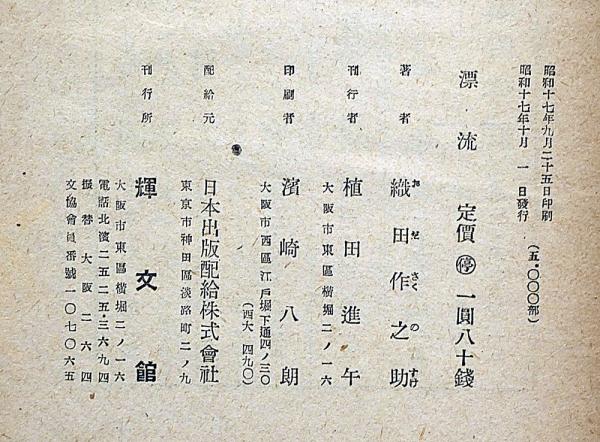 昭和十七年九月二十五日印刷
昭和十七年十月 一 日發行
(五・〇〇〇部)
漂流 定價 停 一圓八十錢
著者 織田作之助
おださくのすけ
刊行者 植田進午
大阪市東區横堀二ノ一六
印刷者 濱崎八朗
大阪市西區江戸堀下通四ノ三〇
(西大 四九〇)
配給元 日本出版配給株式會社
東京市神田區淡路町二ノ九
刊行所 輝文館
大阪市東區横堀二ノ一六
電話北濱二五二五・三六九四
振替大阪二六四
文協會員番號一〇七〇六五